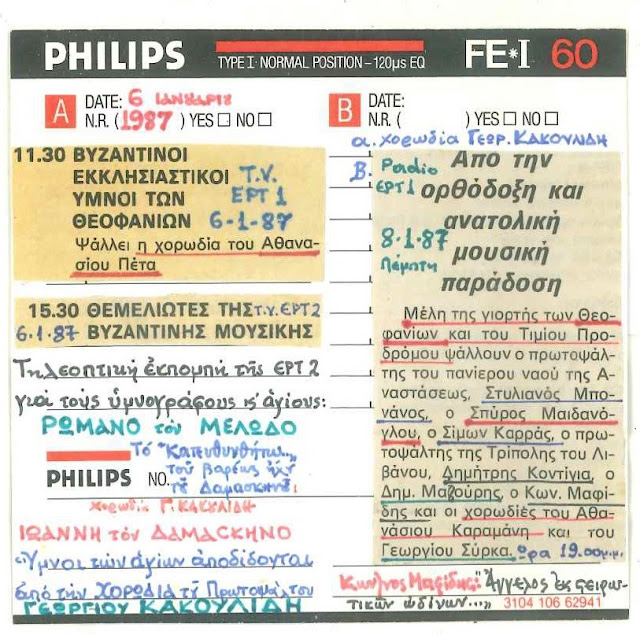 PHILIPS
TYPE I · NORMAL POSITION – 120µs EQ
FE*I 60
A DATE: 6 ΙΑΝΟΥΑΡΙΟΥ
N.R. (1987) YES □ NO □
B DATE:
N.R. ( ) YES □ NO □
11.30 ΒΥΖΑΝΤΙΝΟΙ
ΕΚΚΛΗΣΙΑΣΤΙΚΟΙ T.V.
ΥΜΝΟΙ ΤΩΝ ΕΡΤ 1
ΘΕΟΦΑΝΙΩΝ 6-1-87
Ψάλλει η χορωδία του Αθανα-
σίου Πέτα
15.30 ΘΕΜΕΛΙΩΤΕΣ ΤΗΣ T.V. ΕΡΤ2
6.1.87 ΒΥΖΑΝΤΙΝΗΣ ΜΟΥΣΙΚΗΣ
Τηλεοπτική ἐκπομπή τῆς ΕΡΤ 2
γιά τούς ὑμνογράφους κ' ἁγίους:
ΡΩΜΑΝΟ τόν ΜΕΛΩΔΟ
Τό "Κατευθυνθήτω..."
PHILIPS NO.
τοῦ βαρέως ἤχου
τοῦ Δαμασκηνοῦ:
χορωδία Γ. ΚΑΚΟΥΛΙΔΗ
ΙΩΑΝΝΗ τόν ΔΑΜΑΣΚΗΝΟ
Ὕμνοι τῶν ἁγίων ἀποδίδονται
ἀπό τήν ΧΟΡΩΔΙΑ τοῦ Πρωτοψάλτου
ΓΕΩΡΓΙΟΥ ΚΑΚΟΥΛΙΔΗ
α. χορωδία ΓΕΩΡ. ΚΑΚΟΥΛΙΔΗ
Β. Radio Από την
ΕΡΤ1 ορθόδοξη και
ανατολική
8.1.87 μουσική
Πέμπτη παράδοση
Μέλη της γιορτής των Θεο-
φανίων και του Τιμίου Προ-
δρόμου ψάλλουν ο πρωτοψάλ-
της του πανίερου ναού της Α-
ναστάσεως, Στυλιανός Μπο-
νάνος, ο Σπύρος Μαϊδανό-
γλου, ο Σίμων Καρράς, ο πρω-
τοψάλτης της Τρίπολης του Λι-
βάνου, Δημήτρης Κοντίγια, ο
Δημ. Μαζούρης, ο Κων. Μαφί-
δης και οι χορωδίες του Αθα-
νάσιου Καραμάνη και του
Γεωργίου Σύρκα. ὥρα 19.00 μ.μ.
Κων/νος Μαφίδης: "Ἄγγελος ἐκ στειρω-
τικῶν ὠδίνων..." 3104 106 62941